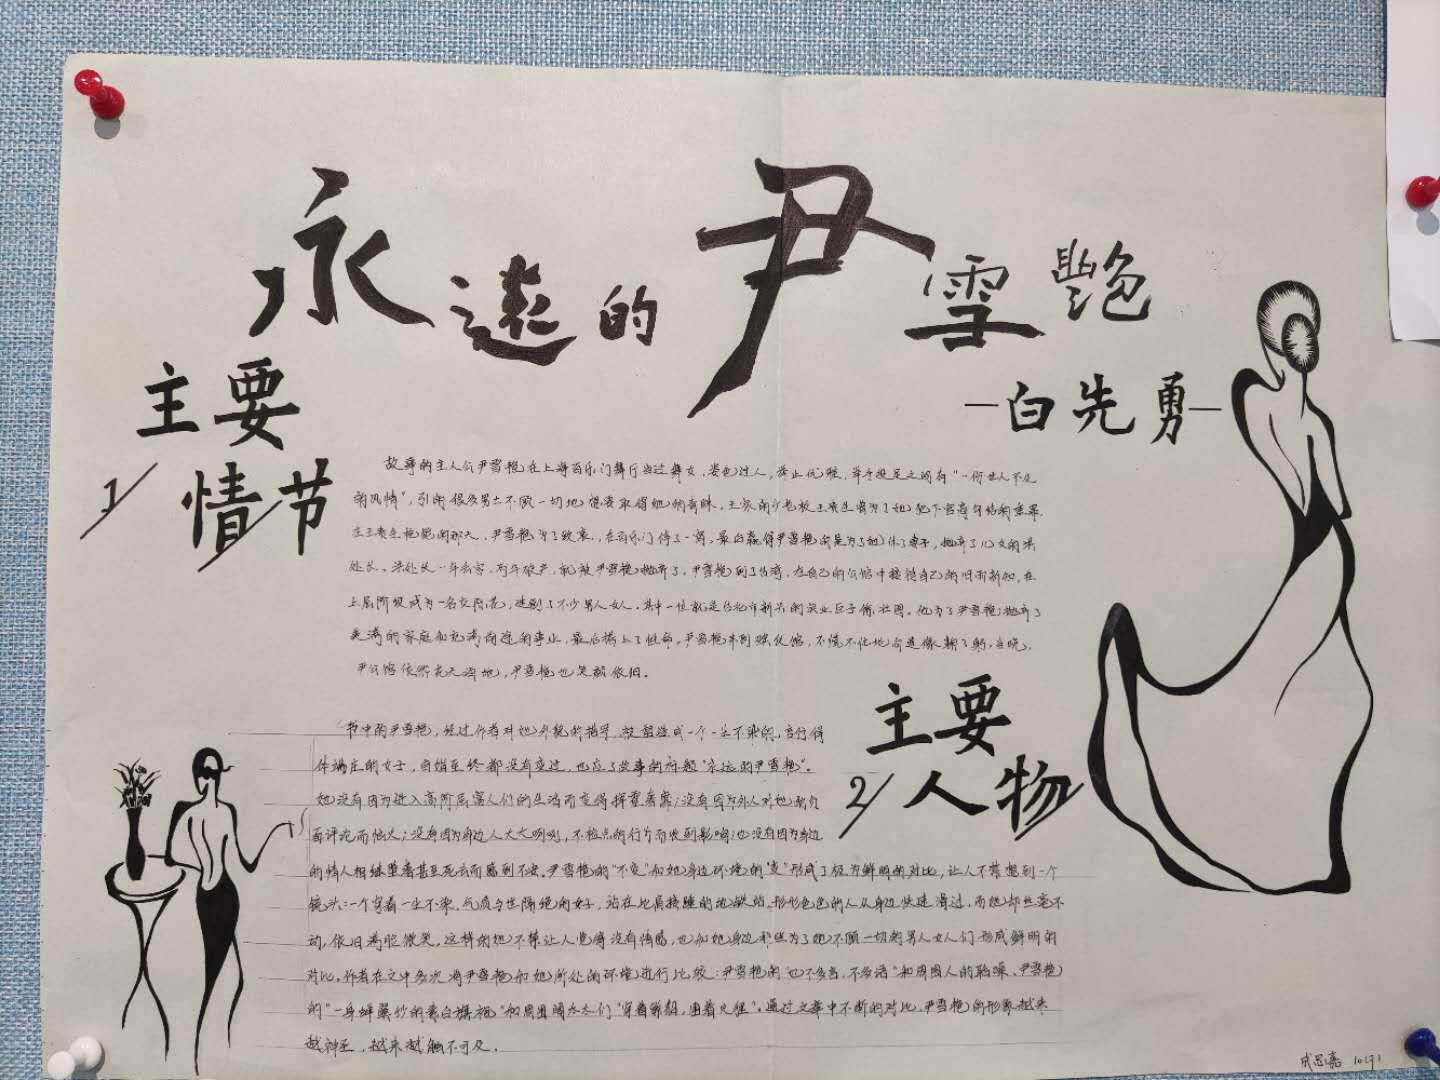 永遠的尹雪艷
—白先勇—
主要
1/情节
故事的主人公尹雪艳在上海百乐门舞厅当过舞女，姿色过人，举止优雅，举手投足之间有“一份世人不及
的风情”，引得很多男士不顾一切地想要取得她的青睐。王家的少老板王贵生曾为了她犯下官商勾结的重罪，
在王贵生枪毙的那天，尹雪艳为了致哀，在百乐门停了一宵，最后赢得尹雪艳的是为了她休了妻子，抛弃了儿女的洪
处长。洪处长一年丢官，两年破产，就被尹雪艳抛弃了。尹雪艳到了台湾，在自己的公馆中接待自己的旧雨新知，在
上层阶级成为一名交际花，迷倒了不少男人女人。其中一位就是台北市新兴的实业巨子徐壮图。他为了尹雪艳抛弃了
美满的家庭和充满前途的事业，最后搭上了性命。尹雪艳来到殡仪馆，不慌不忙地向遗像鞠了躬，当晚，
尹公馆依然花天酒地，尹雪艳也笑颜依旧。
主要
2/人物
书中的尹雪艳，经过作者对她外貌的描写，被塑造成一个一尘不染的，言行得
体端庄的女子，自始至终都没有变过，也应了故事的标题“永远的尹雪艳”。
她没有因为进入高阶层富人们的生活而变得挥霍奢靡；没有因为外人对她的负
面评论而恼火；没有因为身边人大大咧咧，不检点的行为而收到影响；也没有因为身边
的情人相继堕落甚至死去而感到不安。尹雪艳的“不变”和她身边环境的“变”形成了极为鲜明的对比，让人不禁想到一个
镜头：一个穿着一尘不染，气质与世隔绝的女子，站在比肩接踵的地铁站，形形色色的人从身边快速滑过，而她却丝毫不
动，依旧满脸微笑。这样的她不禁让人觉得没有情感，也和她身边那些为了她不顾一切的男人女人们形成鲜明的
对比。作者在文中多次将尹雪艳和她所处的环境进行比较：尹雪艳的“也不多言，不多语”和周围人的聒噪、尹雪艳
的“一身蝉翼纱的素白旗袍”和周围阔太太们“穿着，围着火狸”。通过文章中不断的对比，尹雪艳的形象越来
越神圣，越来越触不可及。
成思嘉